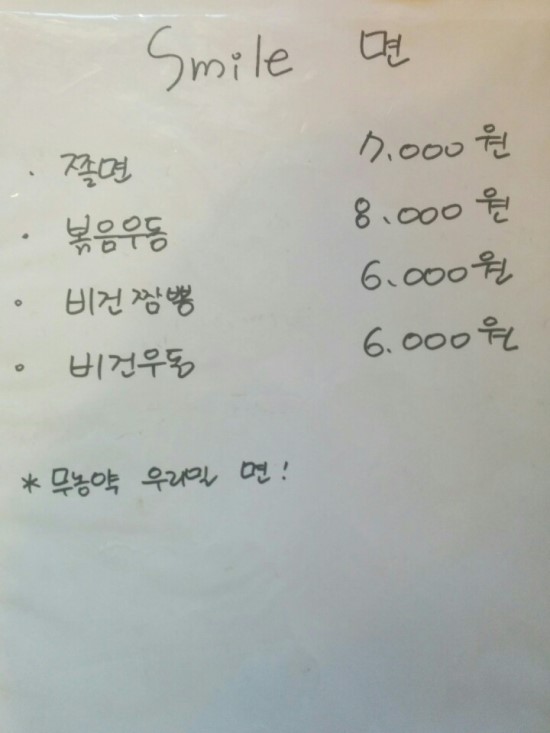 Smile 면
· 쫄면 7.000원
· 볶음우동 8.000원
· 비건짬뽕 6.000원
· 비건우동 6.000원
* 무농약 우리밀 면!